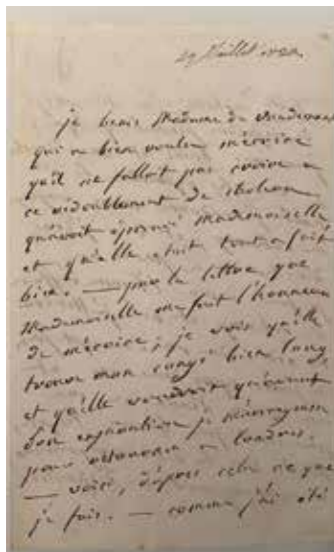 je bénis Madame de
qui a bien voulu m'écrire
qu'il ne falloit pas croire a
ce redoublement de
qu'avoit éprouvé Mademoiselle
et qu'elle étoit tout a fait
bien. — par la lettre que
Mademoiselle me fait l'honneur
de m'écrire, je vois qu'elle
trouve mon congé bien long
et qu'elle voudroit qu'avant
son expiration je
pour retourner a Londres.
— voici, d'après cela ce que
je fais. — comme j'ai été